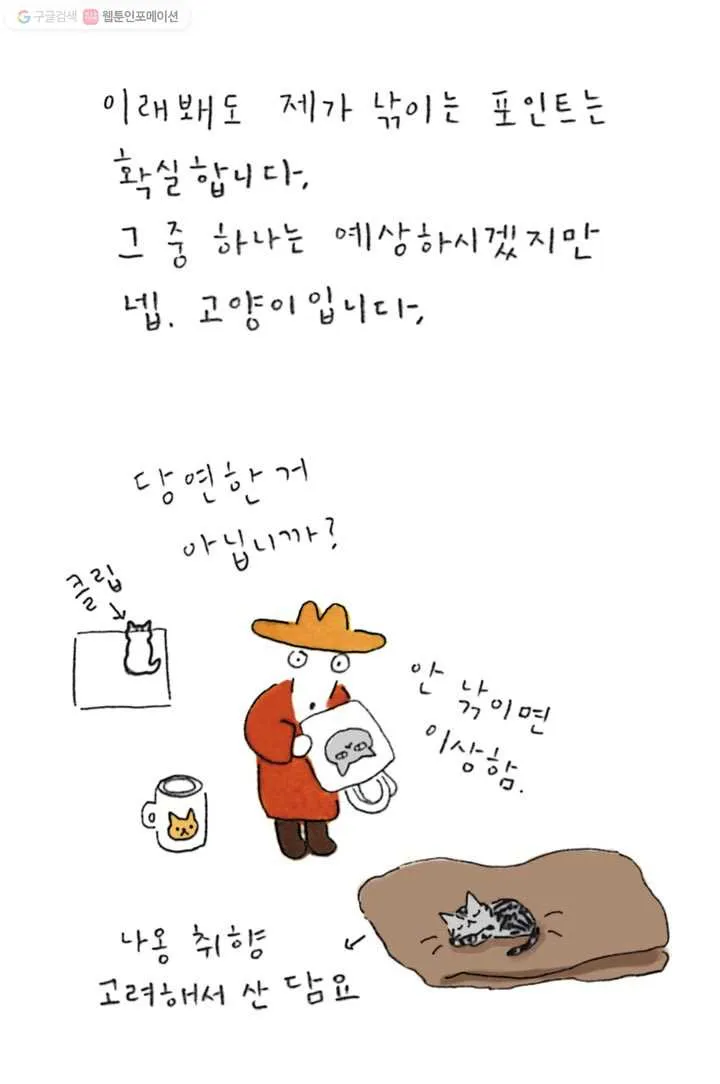 구글검색 웹툰인포메이션
이래봬도 제가 낚이는 포인트는
확실합니다.
그 중 하나는 예상하시겠지만
넵. 고양이입니다.
당연한 거
아닙니까?
클립
안 낚이면
이상함.
나옹 취향
고려해서 산 담요